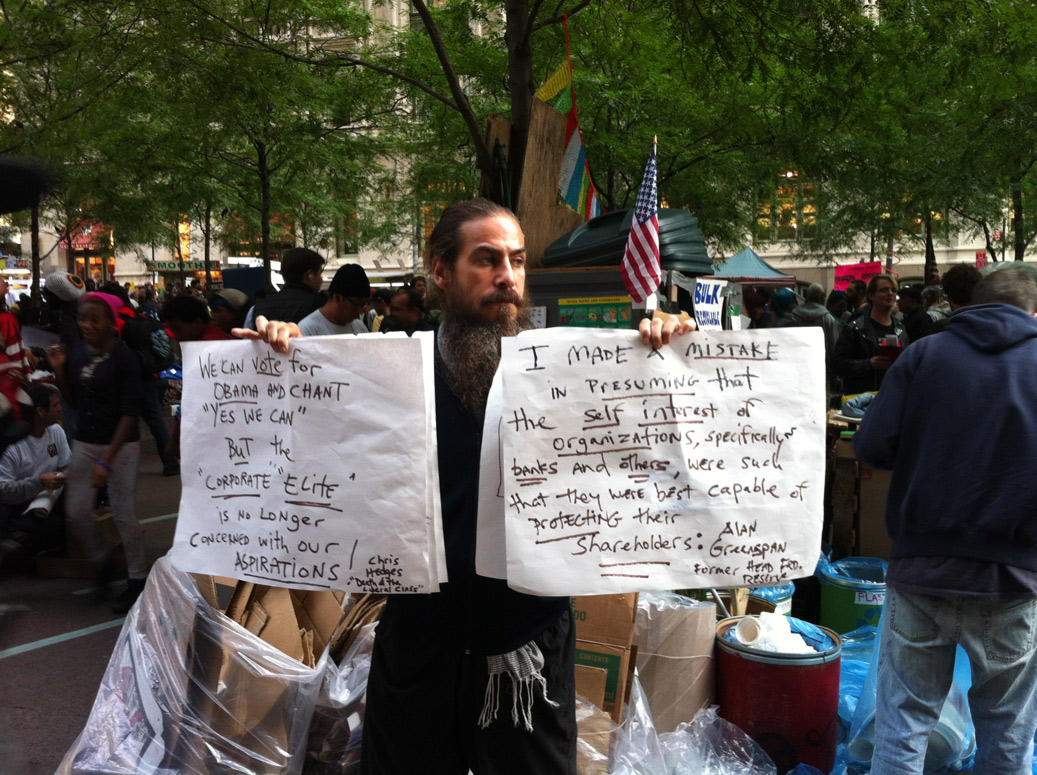 WE CAN VOTE for
OBAMA AND CHANT
"YES WE CAN"
BUT the
"CORPORATE" "ELITE"
is NO LONGER
CONCERNED with OUR
ASPIRATIONS!
Chris
Hedges
"Death of the
Liberal Class"
I MADE A MISTAKE
IN PRESUMING that
the self interest of
ORGANIZATIONS, specifically
banks AND others, were such
that they were best capable of
PROTECTING their
Shareholders:
ALAN
GREENSPAN
Former HEAD FED.
RESERVE
SMOOTHIE
BULK
PLAS
CONTENTS